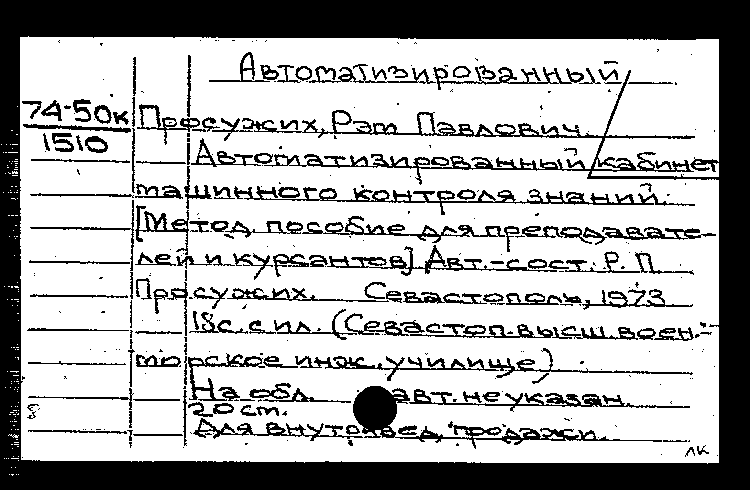 Автоматизированный
74-50к
1510
Просужих, Рэт Павлович.
Автоматизированный кабинет
машинного контроля знаний.
[Метод. пособие для преподавате-
лей и курсантов] Авт.-сост.: Р. П.
Просужих. Севастополь, 1973
18 с. с ил. (Севастоп. высш. воен.-
морское инж. училище)
На обл. авт. не указан.
20 см.
8
Для внутривед. продажи.
ЛК